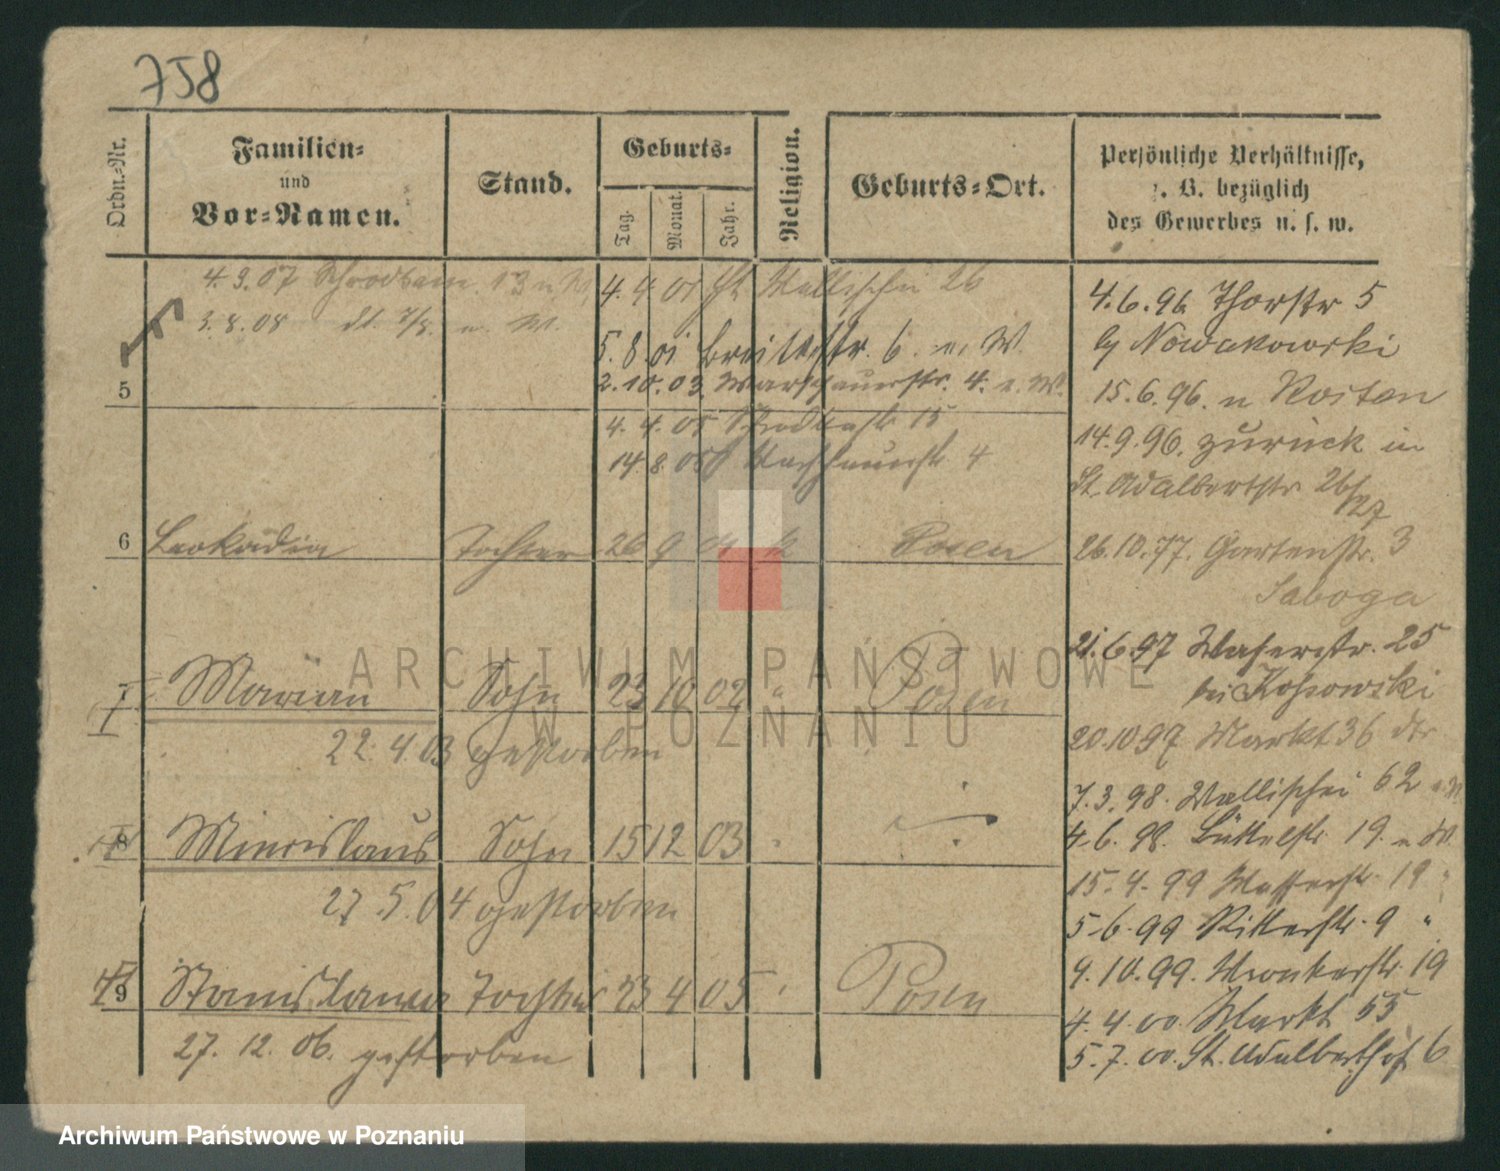 758
Ordn.-Nr.
Familien-
und
Vor-Namen.
Stand.
Geburts-
Tag.
Monat.
Jahr.
Religion.
Geburts-Ort.
Persönliche Verhältnisse,
z. B. bezüglich
des Gewerbes u. s. w.
4.3.07 Schrodkam. 13 u W.
3.8.08
4. 9 01 St Wallischei 26
5.8.01 Breitestr. 6. u. W.
2.10.03. Warschauerstr. 4. u. W.
5
4. 4. 05 Schrodkastr 15
14.8.05 4
6 Leokadia Tochter 26 9 01 k Posen
7 Marian Sohn 23 10 02 " Posen
22.4.03 gestorben
8 Miecislaus Sohn 15 12 03
27.5.04 gestorben
9 Stanislawa Tochter 23 4 05 Posen
27.12.06. gestorben
4.6.96 Thorstr 5
by Nowakowski
15.6.96. n Rosten
14.9.96. zurück in
St. Adalbertstr 26/27
26.10.97. Gartenstr. 3
Saboga
21.6.97 Wasserstr. 25
bei Kossowski
20.10 97 Markt 36
7.3.98. Wallischei 62 u W
4.6.98. Büttelstr 19. u W.
15.4.99 Wasserstr 19 "
5.6.99 Ritterstr. 9 "
9.10.99. Wronkerstr. 19
4.4.00. Markt 55
5.7.00. St. Adalberthof 6
ARCHIWUM PAŃSTWOWE
W POZNANIU
Archiwum Państwowe w Poznaniu